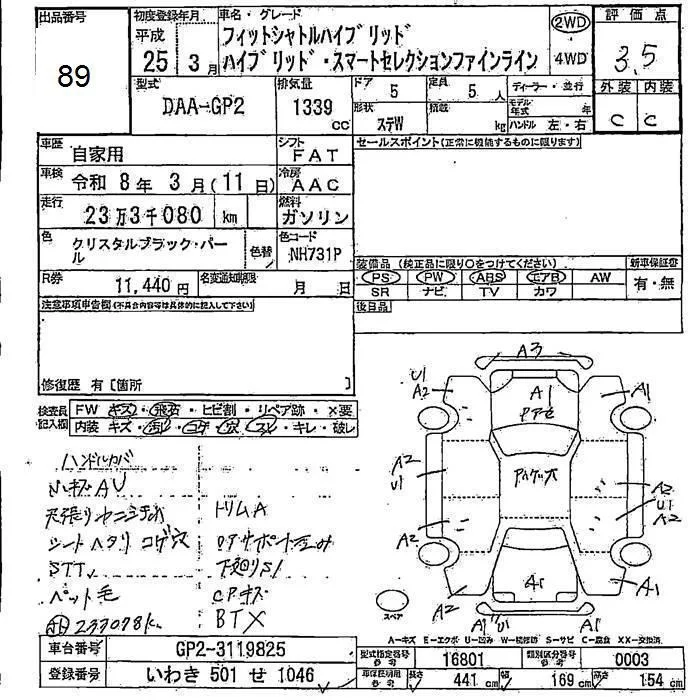 出品番号
89
初度登録年月
平成
25年 3月
車名・グレード
フィットシャトルハイブリッド
ハイブリッド・スマートセレクションファインライン
2WD
4WD
評価点
3.5
外装 内装
C C
型式
DAA-GP2
排気量
1339
cc
ドア
5
定員
5人
形状
ステW
積載
kg
ディーラー・並行
モデル年式 年
ハンドル 左・右
車歴
自家用
シフト
FAT
車検
令和 8年 3月(11日)
冷房
AAC
走行
23万3千080 km
燃料
ガソリン
色
クリスタルブラック・パール
色替
色コード
NH731P
R券
11,440円
名変通知期限
月 日
セールスポイント(正常に機能するものに限ります)
装備品 (純正品に限り○をつけてください)
PS PW ABS エアB AW
SR ナビ TV カワ
新車保証書
有・無
後日品
注意事項申告欄(不具合内容等は具体的に記入して下さい)
修復歴 有 [箇所 ]
検査員記入欄
FW キズ・飛石・ヒビ割・リペア跡・×要
内装 キズ・汚レ・コゲ・穴・スレ・キレ・破レ
ハンドルカバ
天張りヤニ
トリムA
シートヘタリ コゲ穴
下廻りS1
STT
ペット毛
CPキズ
233078k
BTX
A3
U1
A2
A1
A1
A2
U1
A2
A2
U1
A2
A2
A1
A1
U1
A1
スペア
A-キズ E-エクボ U-凹み W-補修跡 S-サビ C-腐食 XX-交換済
車台番号
GP2-3119825
型式指定番号
参考
16801
類別区分番号
参考
0003
登録番号
いわき 501 せ 1046
車保証明用
参考
長さ
441 cm
幅
169 cm
高さ
154 cm